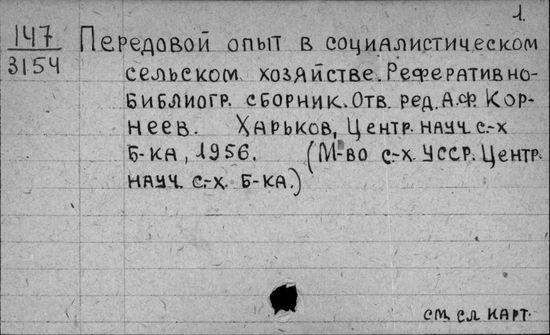 1.
147 Передовой опыт в социалистическом
3154 сельском хозяйстве. Реферативно-
библиогр. сборник. Отв. ред. А.Ф. Кор-
неев. Харьков, Центр. науч. с.-х
б-ка, 1956. (М-во с.-х. УССР. Центр.
науч. с.-х. б-ка.)
см. сл. карт.